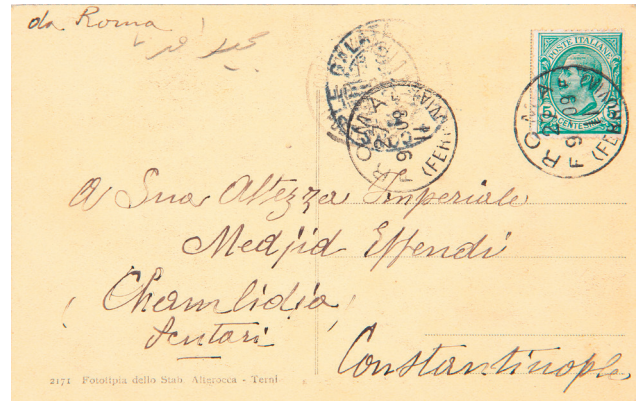 da Roma
POSTE ITALIANE
CENTESIMI
ROMA
(FERROVIA)
ROMA
(FERROVIA)
GALATA
A Sua Altezza Imperiale
Medjid Effendi
Chamlidja
Scutari
Constantinople
2171 Fototipia dello Stab. Alterocca - Terni